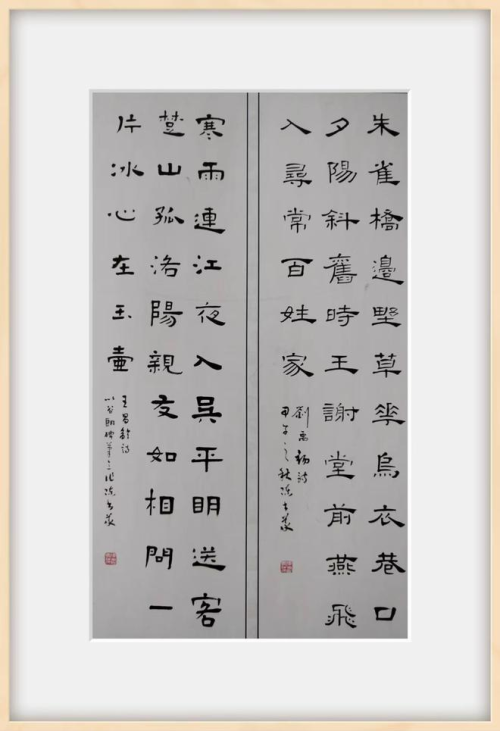 朱雀橋邊野草花烏衣巷口
夕陽斜舊時王謝堂前燕飛
入尋常百姓家
劉禹錫詩
甲午之秋
寒雨連江夜入吳平明送客
楚山孤洛陽親友如相問一
片冰心在玉壺
王昌齡詩